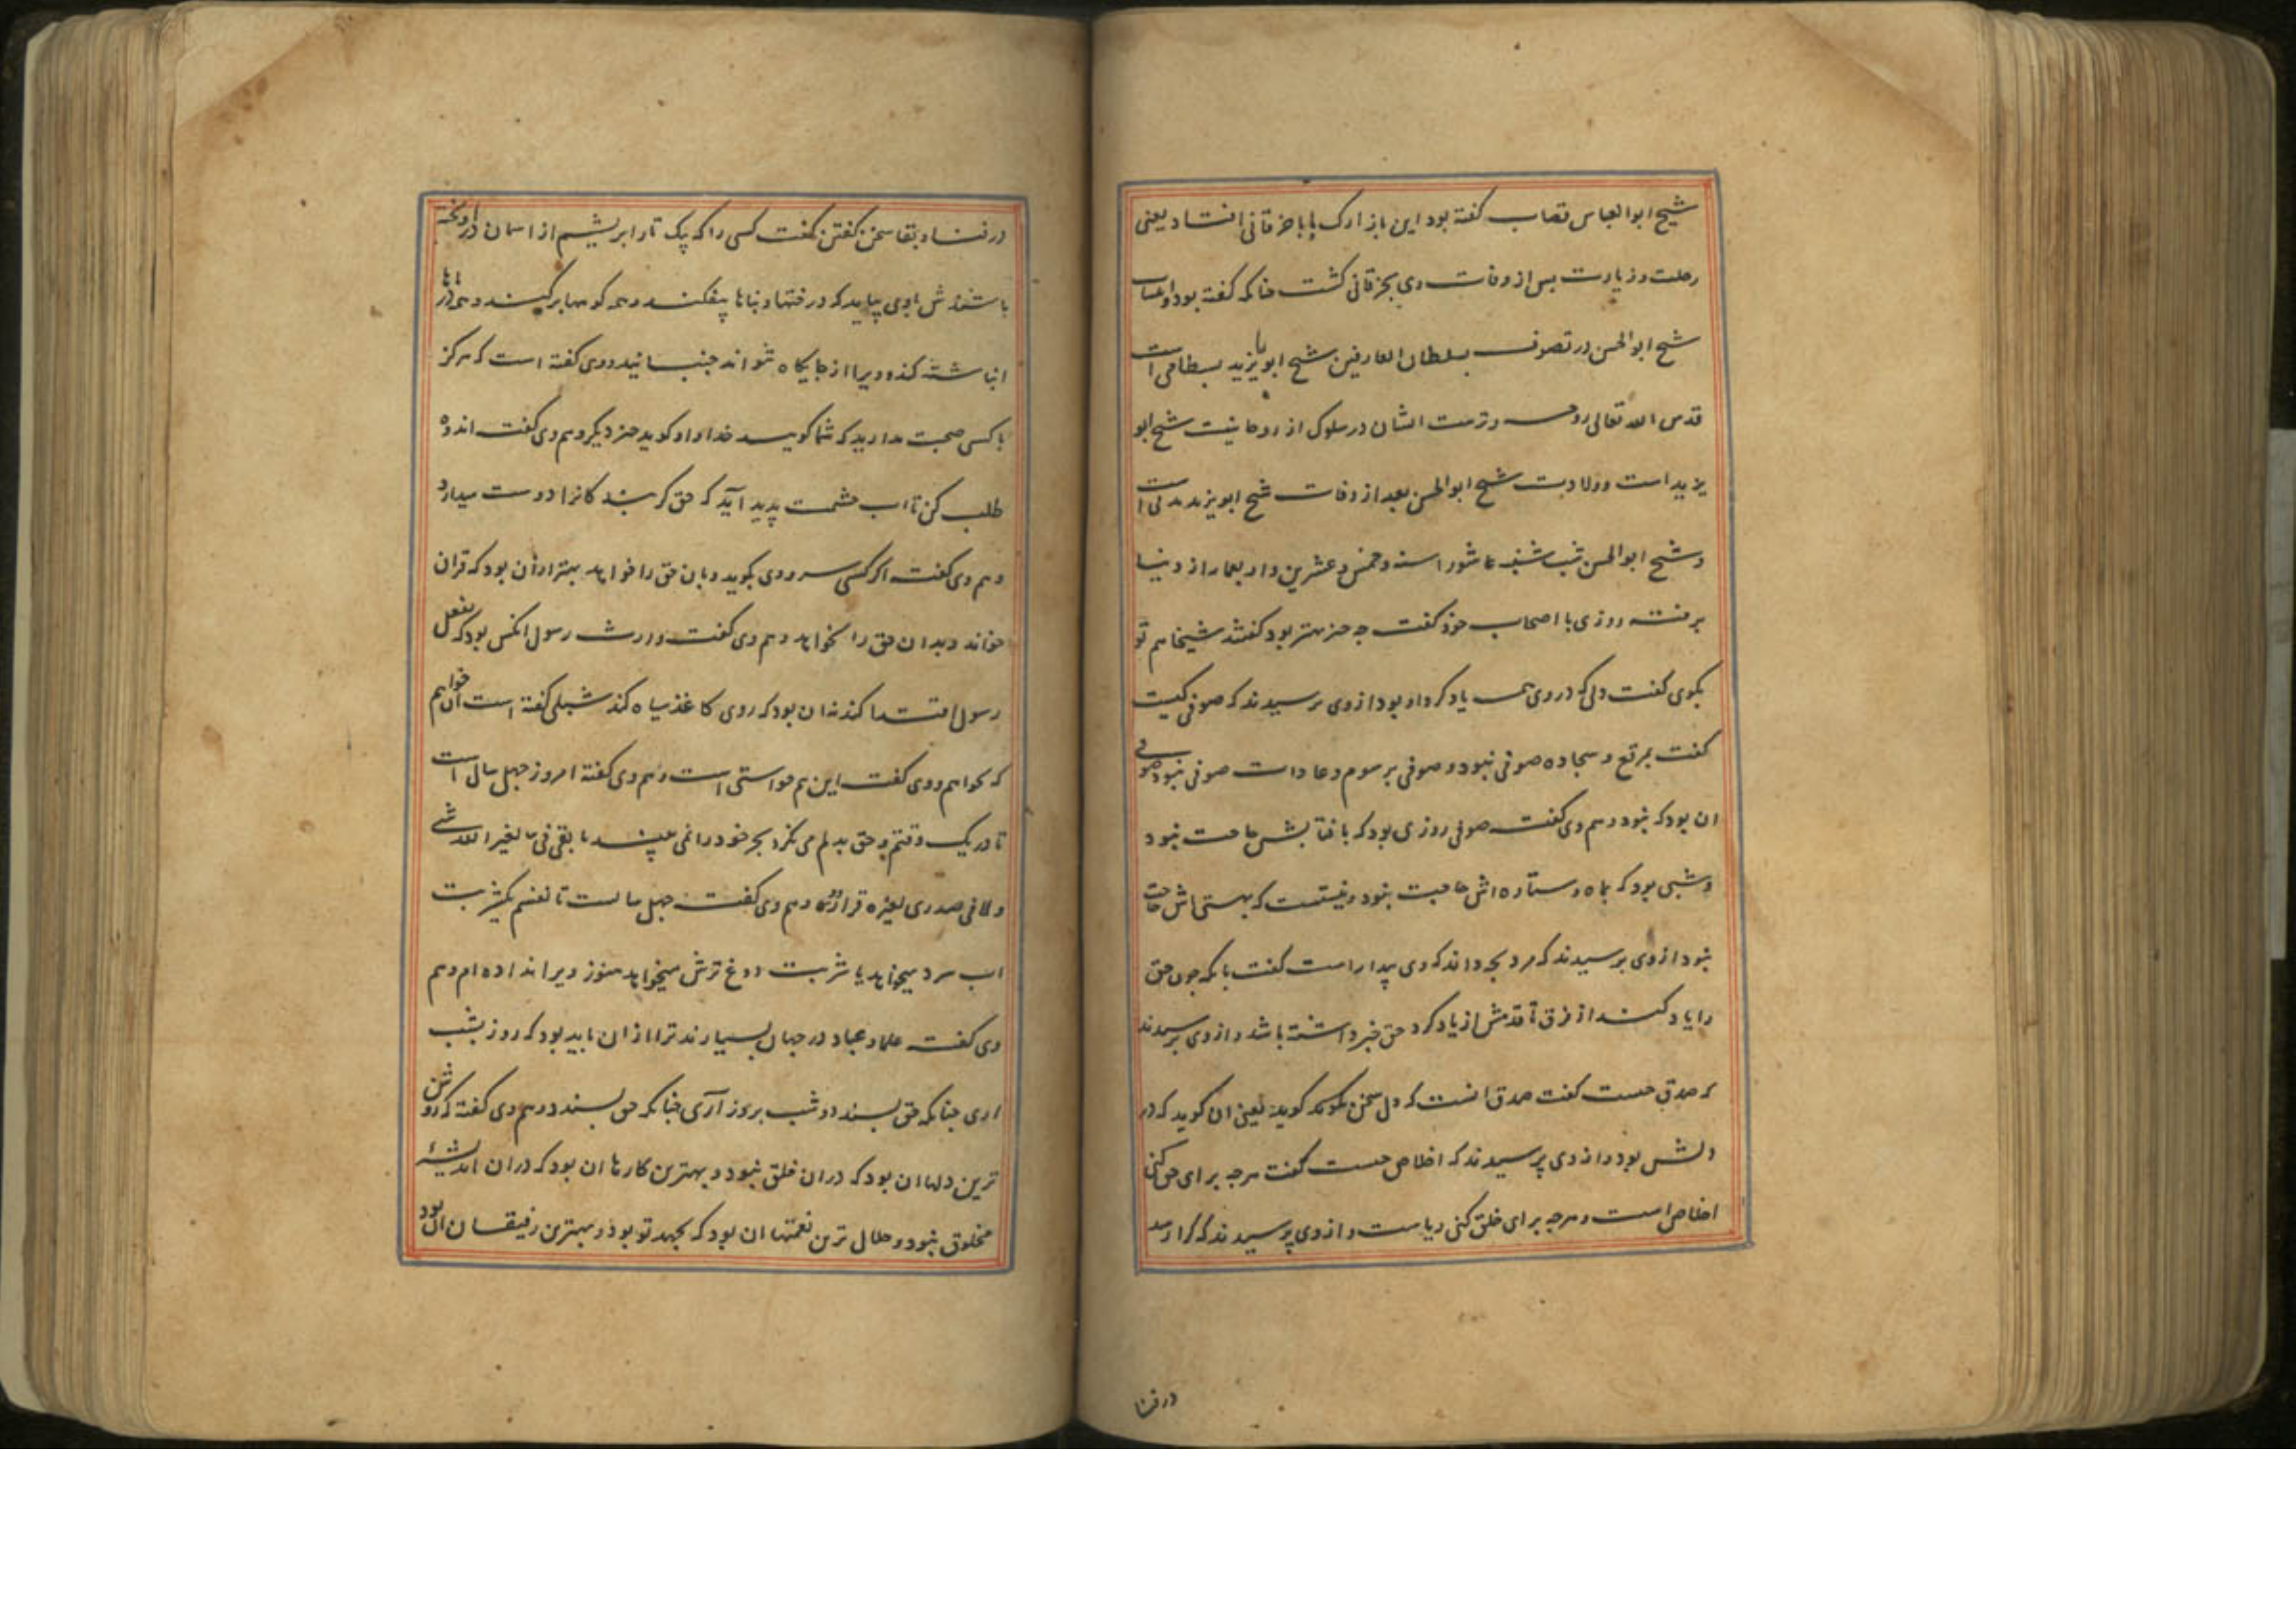 شیخ ابوالعباس قصاب گفته بود این بازارک ما با خرقانی افتاد یعنی
رحلت و زیارت پس از وفات وی بخرقانی گشت چنانکه گفته بود و انتساب
شیخ ابوالحسن در تصوف بسلطان العارفین شیخ ابو یزید بسطامی است
قدس الله تعالی روحه و تربیت ایشان در سلوک از روحانیت شیخ ابو
یزید است و ولادت شیخ ابوالحسن بعد از وفات شیخ ابویزید بمدتی است
و شیخ ابوالحسن شب سشنبه عاشورا سنه و خمس و عشرین و اربعمایه از دنیا
برفته روزی با اصحاب خود گفت چه چیز بهتر بود گفتند شیخا هم تو
بکوی گفت دلی که در وی همه یاد کرد او بود از وی پرسیدند که صوفی کیست
گفت بمرقع و سجاده صوفی نبود و صوفی برسوم و عادات صوفی نبود صوفی
ان بود که نبود و هم وی گفت صوفی روزی بود که بافتابش حاجت نبود
و شبی بود که بماه و ستاره اش حاجت نبود و نیستیست که بهستی اش حاجت
نبود از وی پرسیدند که مرد بچه داند که وی بیدار است گفت بانکه چون حق
را یاد کند از فرق تا قدمش از یاد کرد حق خبر داشته باشد و از وی پرسیدند
که صدق چیست گفت صدق انست که دل سخن گوید یعنی ان گوید که در
دلش بود و از وی پرسیدند که اخلاص چیست گفت هرچه برای حق کنی
اخلاص است و هرچه برای خلق کنی ریاست و از وی پرسیدند که کرا رسد
در فنا
در فنا و بقا سخن گفتن گفت کسی را که بیک تار ابریشم از اسمان در اویخته
باشندش بادی بیاید که درختها و بناها بیفکند و همه کوهها برکند و همه دریاها
انباشته کند و ویرا از جایگاه نتواند جنبانید و وی گفته است که هرگز
با کسی صحبت مدارید که شما گویید خدا و او گوید چیز دیگر و هم وی گفت اندوه
طلب کن تا اب چشمت پدید آید که حق گریندکانرا دوست میدارد
و هم وی گفت اگر کسی سرودی بگوید و بان حق را خواهد بهتر ازان بود که قران
خواند و بدان حق را نخواهد و هم وی گفت وارث رسول انکس بود که بفعل
رسول اقتدا کند نه ان بود که روی کاغذ سیاه کند شبلی گفته است ان خواهم
که نخواهم و وی گفت این هم خواستی است و هم وی گفته امروز چهل سال است
تا در یک وقتم و حق بدلم می نگرد بجز خود را نمی بیند ما بقی فی لغیر الله شی
و لا فی صدری لغیره قرار و هم وی گفت چهل سالست تا نفسم یکشربت
اب سرد میخواهد یا شربت دوغ ترش میخواهد هنوز ویرا نداده ام و هم
وی گفت علما و عباد در جهان بسیارند ترا ازان باید بود که روز بشب
اری چنانکه حق پسندد و شب بروز آری چنانکه حق پسندد و هم وی گفته که روشن
ترین دلها ان بود که دران خلق نبود و بهترین کارها ان بود که دران اندیشهٔ
مخلوق نبود و حلال ترین نعمتها ان بود که بجهد تو بود و بهترین رفیقان ان بود